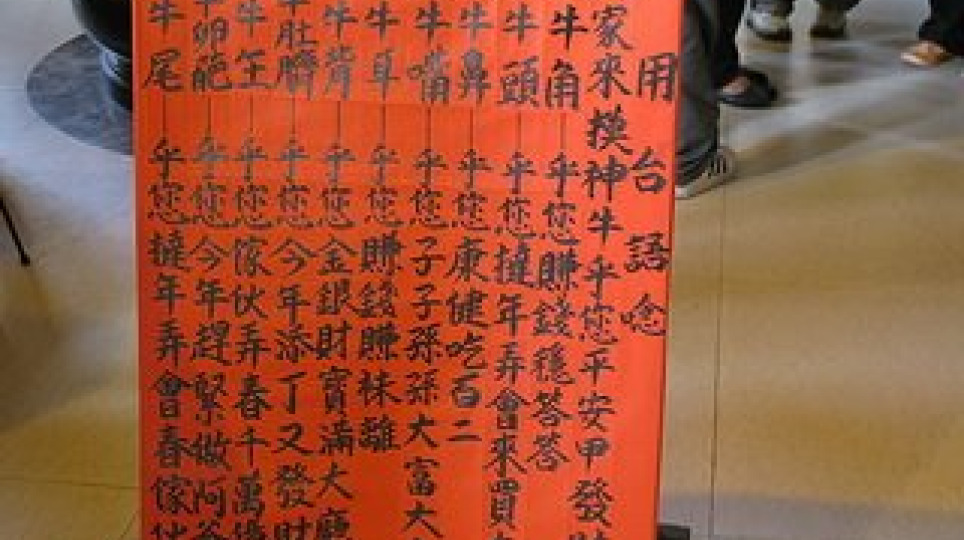 用台語唸
家來摸神牛乎您平安甲發財
牛角乎您賺錢穩答答
牛頭乎您撻年弄會來買
牛鼻乎您康健吃百二
牛嘴乎您子子孫孫大富大
牛耳乎您賺錢賺袜離
牛背乎您金銀財寶滿大廳
牛肚臍乎您今年添丁又發財
牛生乎您傢伙弄春千萬億
牛卵葩乎您今年趕緊做阿爸
牛尾乎您撻年弄會春傢伙